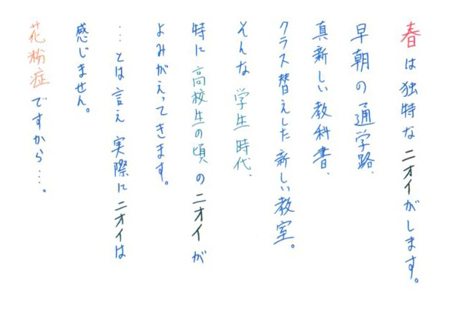 春は独特なニオイがします。
早朝の通学路、
真新しい教科書、
クラス替えした新しい教室。
そんな学生時代、
特に高校生の頃のニオイが
よみがえってきます。
…とは言え実際にニオイは
感じません。
花粉症ですから…。